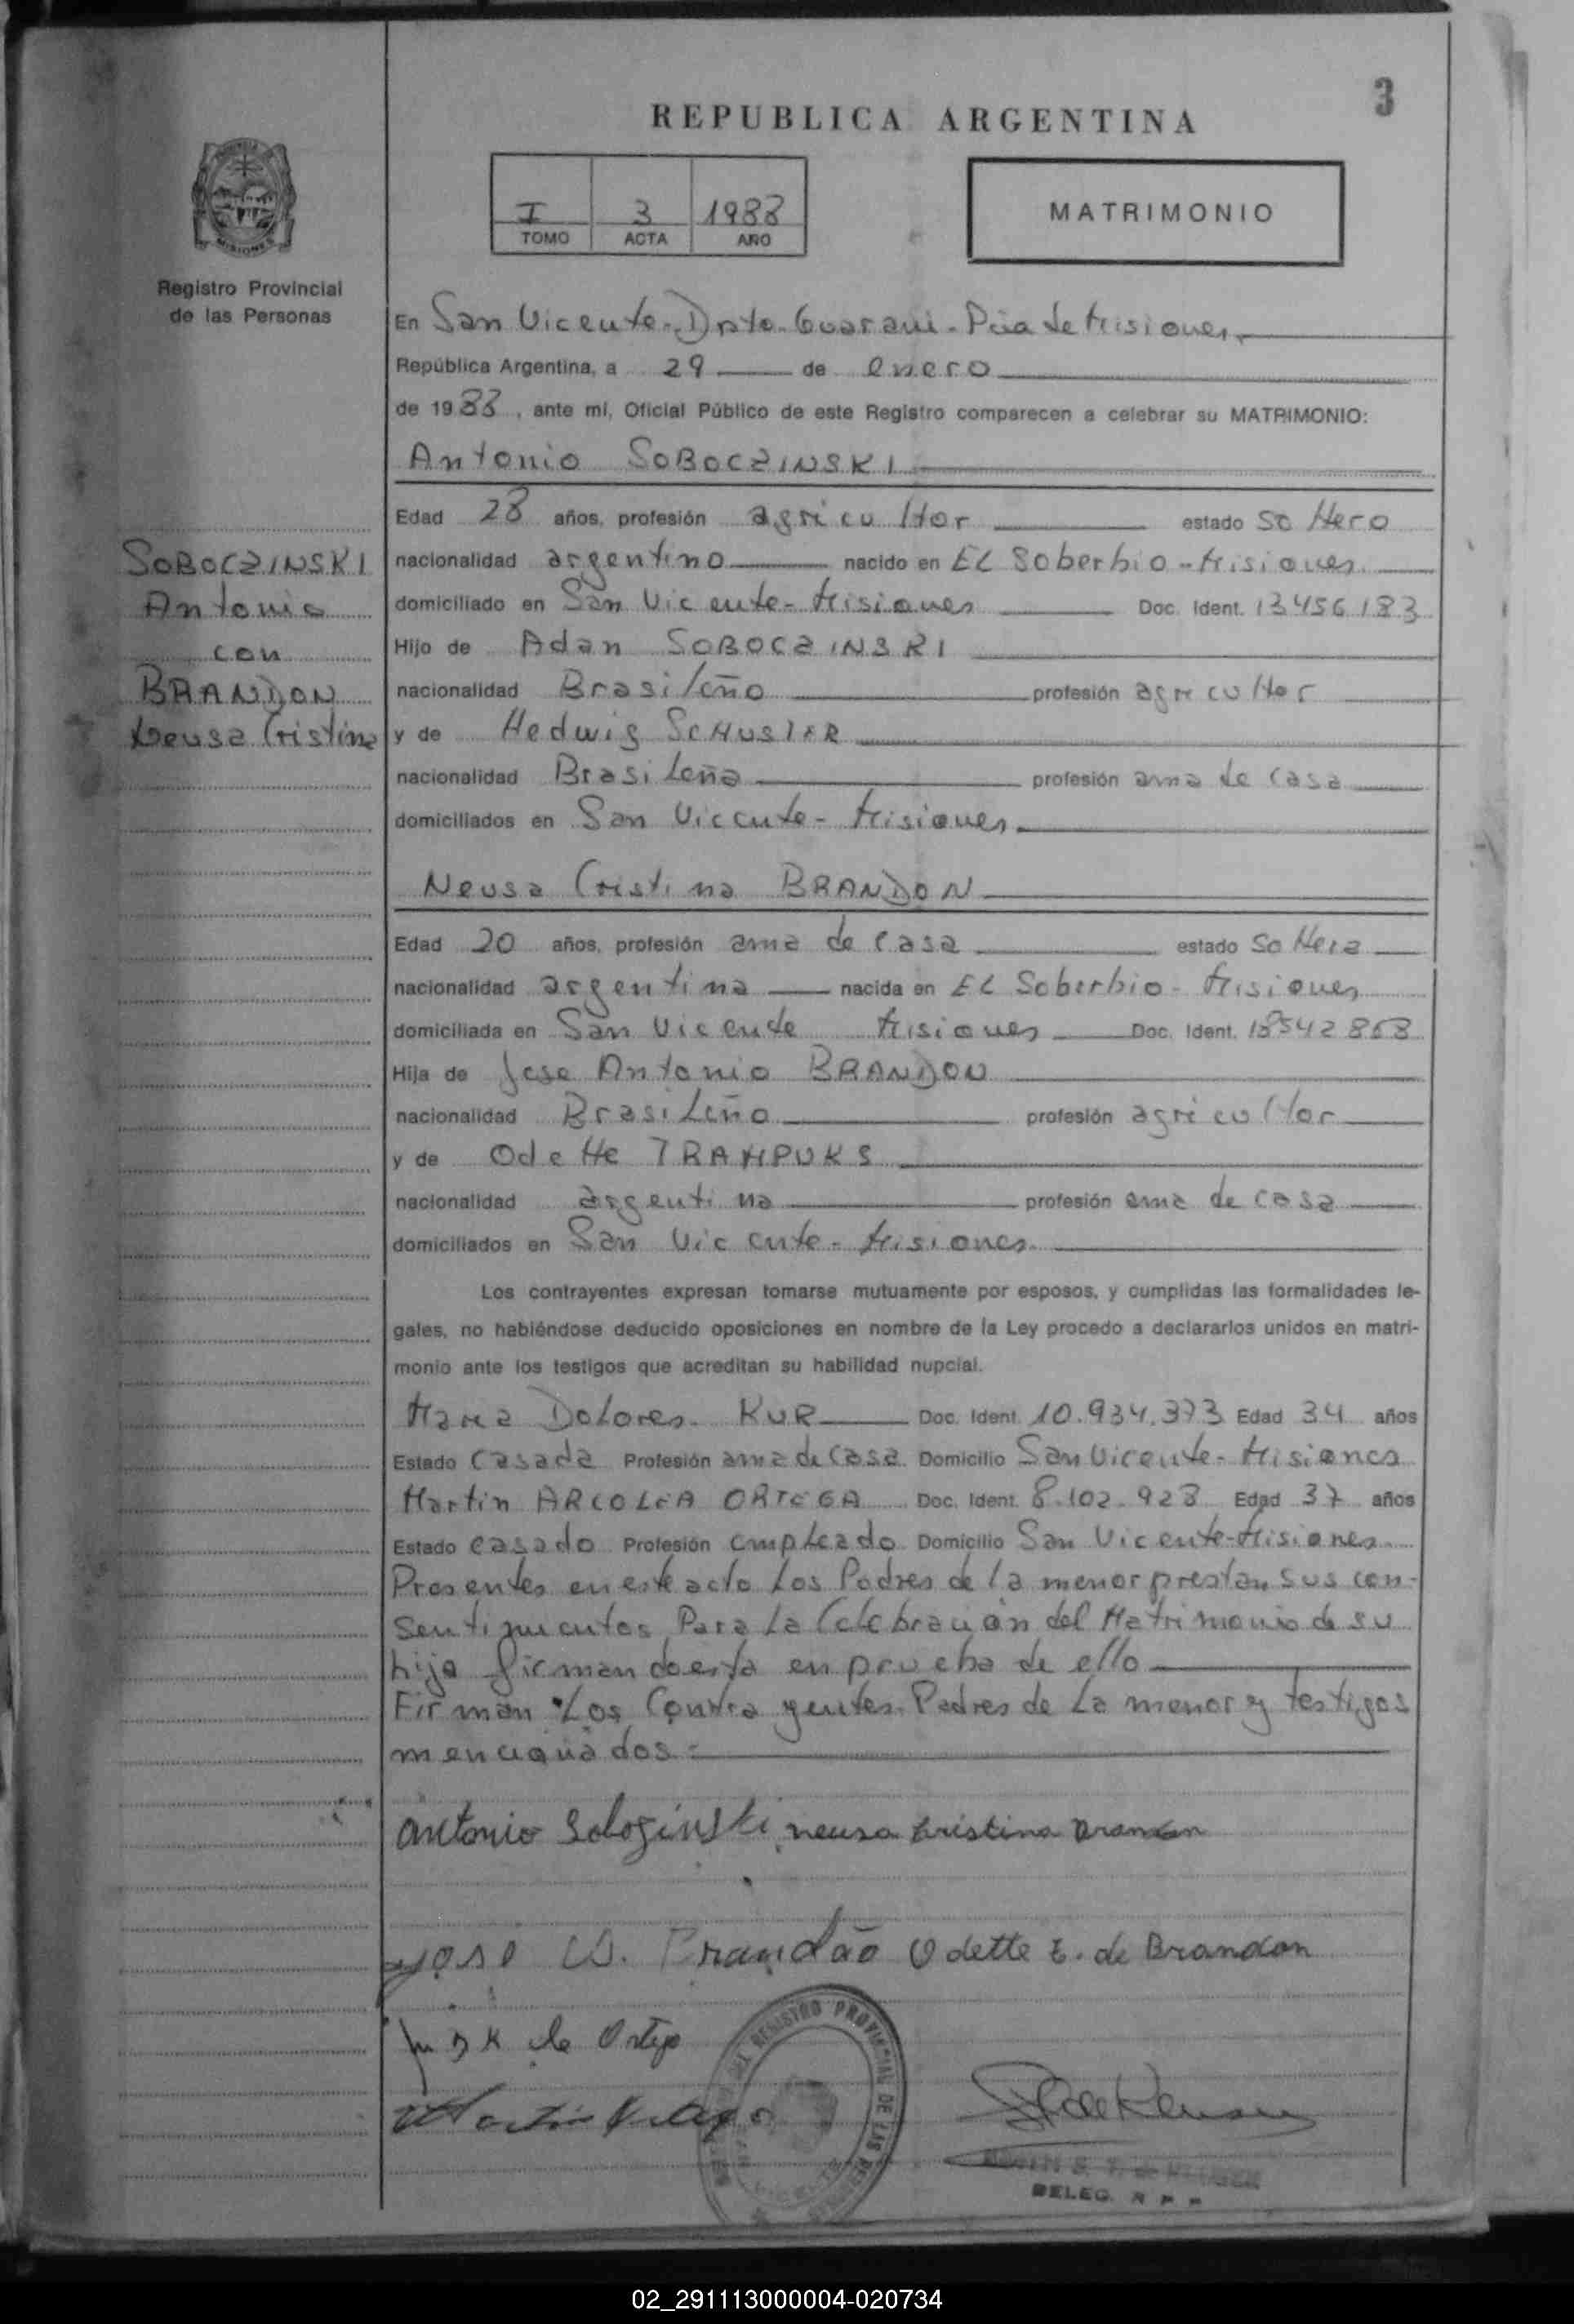 3
REPUBLICA ARGENTINA
I 3 1988
TOMO ACTA AÑO
MATRIMONIO
MISIONES
Registro Provincial
de las Personas
SOBOCZINSKI
Antonio
con
BRANDON
Neusa Cristina
En San Vicente - Dpto. Guarani - Pcia de Misiones
República Argentina, a 29 de enero
de 1988, ante mí, Oficial Público de este Registro comparecen a celebrar su MATRIMONIO:
Antonio SOBOCZINSKI
Edad 28 años, profesión agricultor estado soltero
nacionalidad argentino nacido en EL Soberbio - Misiones
domiciliado en San Vicente - Misiones Doc. Ident. 13456183
Hijo de Adan SOBOCZINSKI
nacionalidad Brasileño profesión agricultor
y de Hedwig SCHUSTER
nacionalidad Brasileña profesión ama de casa
domiciliados en San Vicente - Misiones
Neusa Cristina BRANDON
Edad 20 años, profesión ama de casa estado soltera
nacionalidad argentina nacida en EL Soberbio - Misiones
domiciliada en San Vicente Misiones Doc. Ident.
Hija de Jose Antonio BRANDON
nacionalidad Brasileño profesión agricultor
y de Odette TRAMPUKS
nacionalidad argentina profesión ama de casa
domiciliados en San Vicente - Misiones
Los contrayentes expresan tomarse mutuamente por esposos, y cumplidas las formalidades le-
gales, no habiéndose deducido oposiciones en nombre de la Ley procedo a declararlos unidos en matri-
monio ante los testigos que acreditan su habilidad nupcial.
Maria Dolores KUR Doc. Ident. 10.934.373 Edad 34 años
Estado Casada Profesión ama de casa Domicilio San Vicente - Misiones
Martin ARCOLEA ORTEGA Doc. Ident. 8.102.928 Edad 37 años
Estado casado Profesión empleado Domicilio San Vicente - Misiones
Presentes en este acto Los Padres de la menor prestan sus con-
sentimientos Para La Celebración del Matrimonio de su
hija firmando esta en prueba de ello
Firman Los Contrayentes Padres de La menor y testigos
mencionados
antonio neusa cristina Brandon
Brandão Odette t. de Brandon
de Ortega
Martin
REGISTRO PROVINCIAL DE LAS
DELEG. R P P
02_291113000004-020734